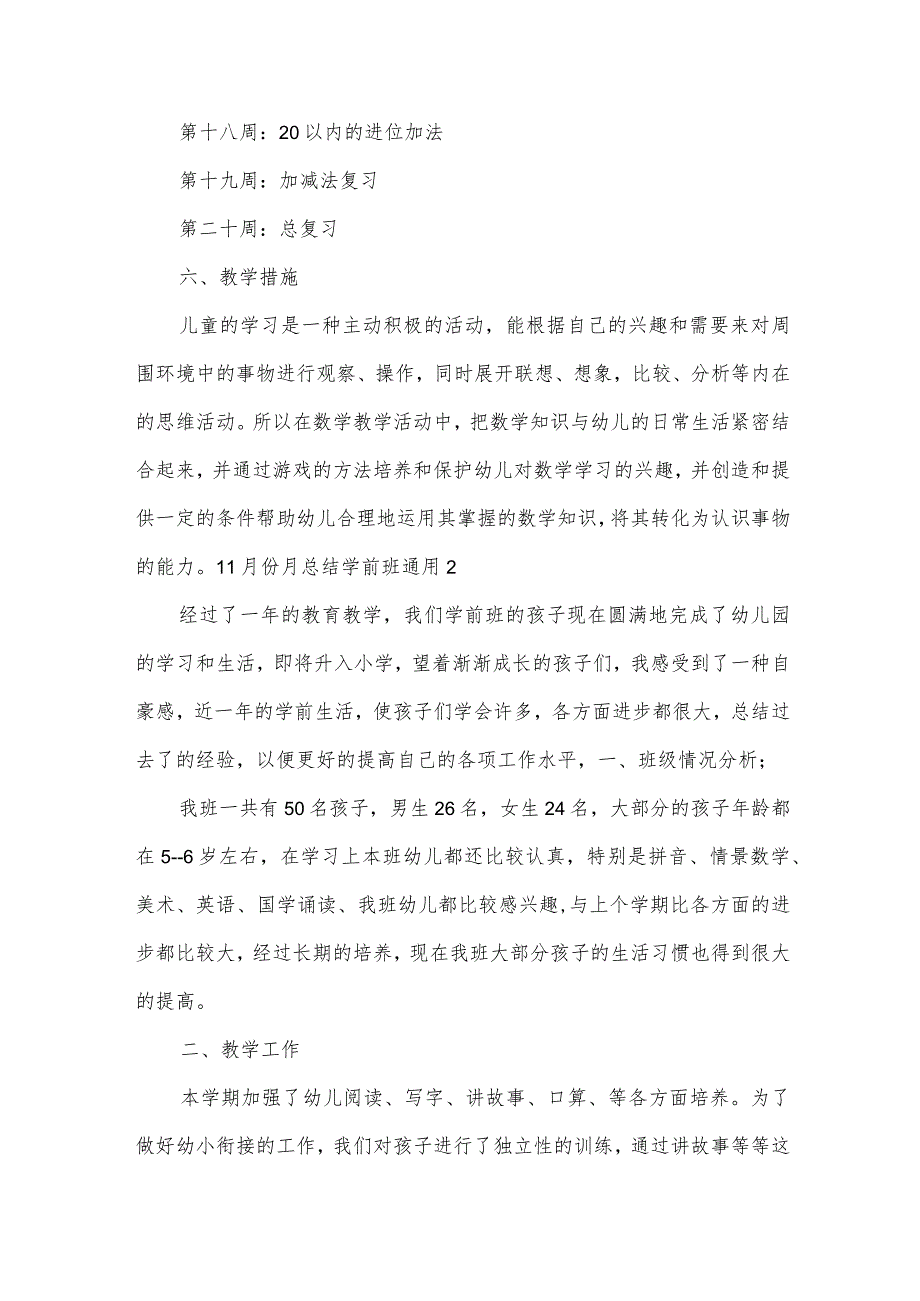 第十八周：20以内的进位加法
第十九周：加减法复习
第二十周：总复习
六、教学措施
儿童的学习是一种主动积极的活动，能根据自己的兴趣和需要来对周
围环境中的事物进行观察、操作，同时展开联想、想象，比较、分析等内在
的思维活动。所以在数学教学活动中，把数学知识与幼儿的日常生活紧密结
合起来，并通过游戏的方法培养和保护幼儿对数学学习的兴趣，并创造和提
供一定的条件帮助幼儿合理地运用其掌握的数学知识，将其转化为认识事物
的能力。11月份月总结学前班通用2
经过了一年的教育教学，我们学前班的孩子现在圆满地完成了幼儿园
的学习和生活，即将升入小学，望着渐渐成长的孩子们，我感受到了一种自
豪感，近一年的学前生活，使孩子们学会许多，各方面进步都很大，总结过
去了的经验，以便更好的提高自己的各项工作水平，一、班级情况分析；
我班一共有50名孩子，男生26名，女生24名，大部分的孩子年龄都
在5--6岁左右，在学习上本班幼儿都还比较认真，特别是拼音、情景数学、
美术、英语、国学诵读、我班幼儿都比较感兴趣，与上个学期比各方面的进
步都比较大，经过长期的培养，现在我班大部分孩子的生活习惯也得到很大
的提高。
二、教学工作
本学期加强了幼儿阅读、写字、讲故事、口算、等各方面培养。为了
做好幼小衔接的工作，我们对孩子进行了独立性的训练，通过讲故事等等这